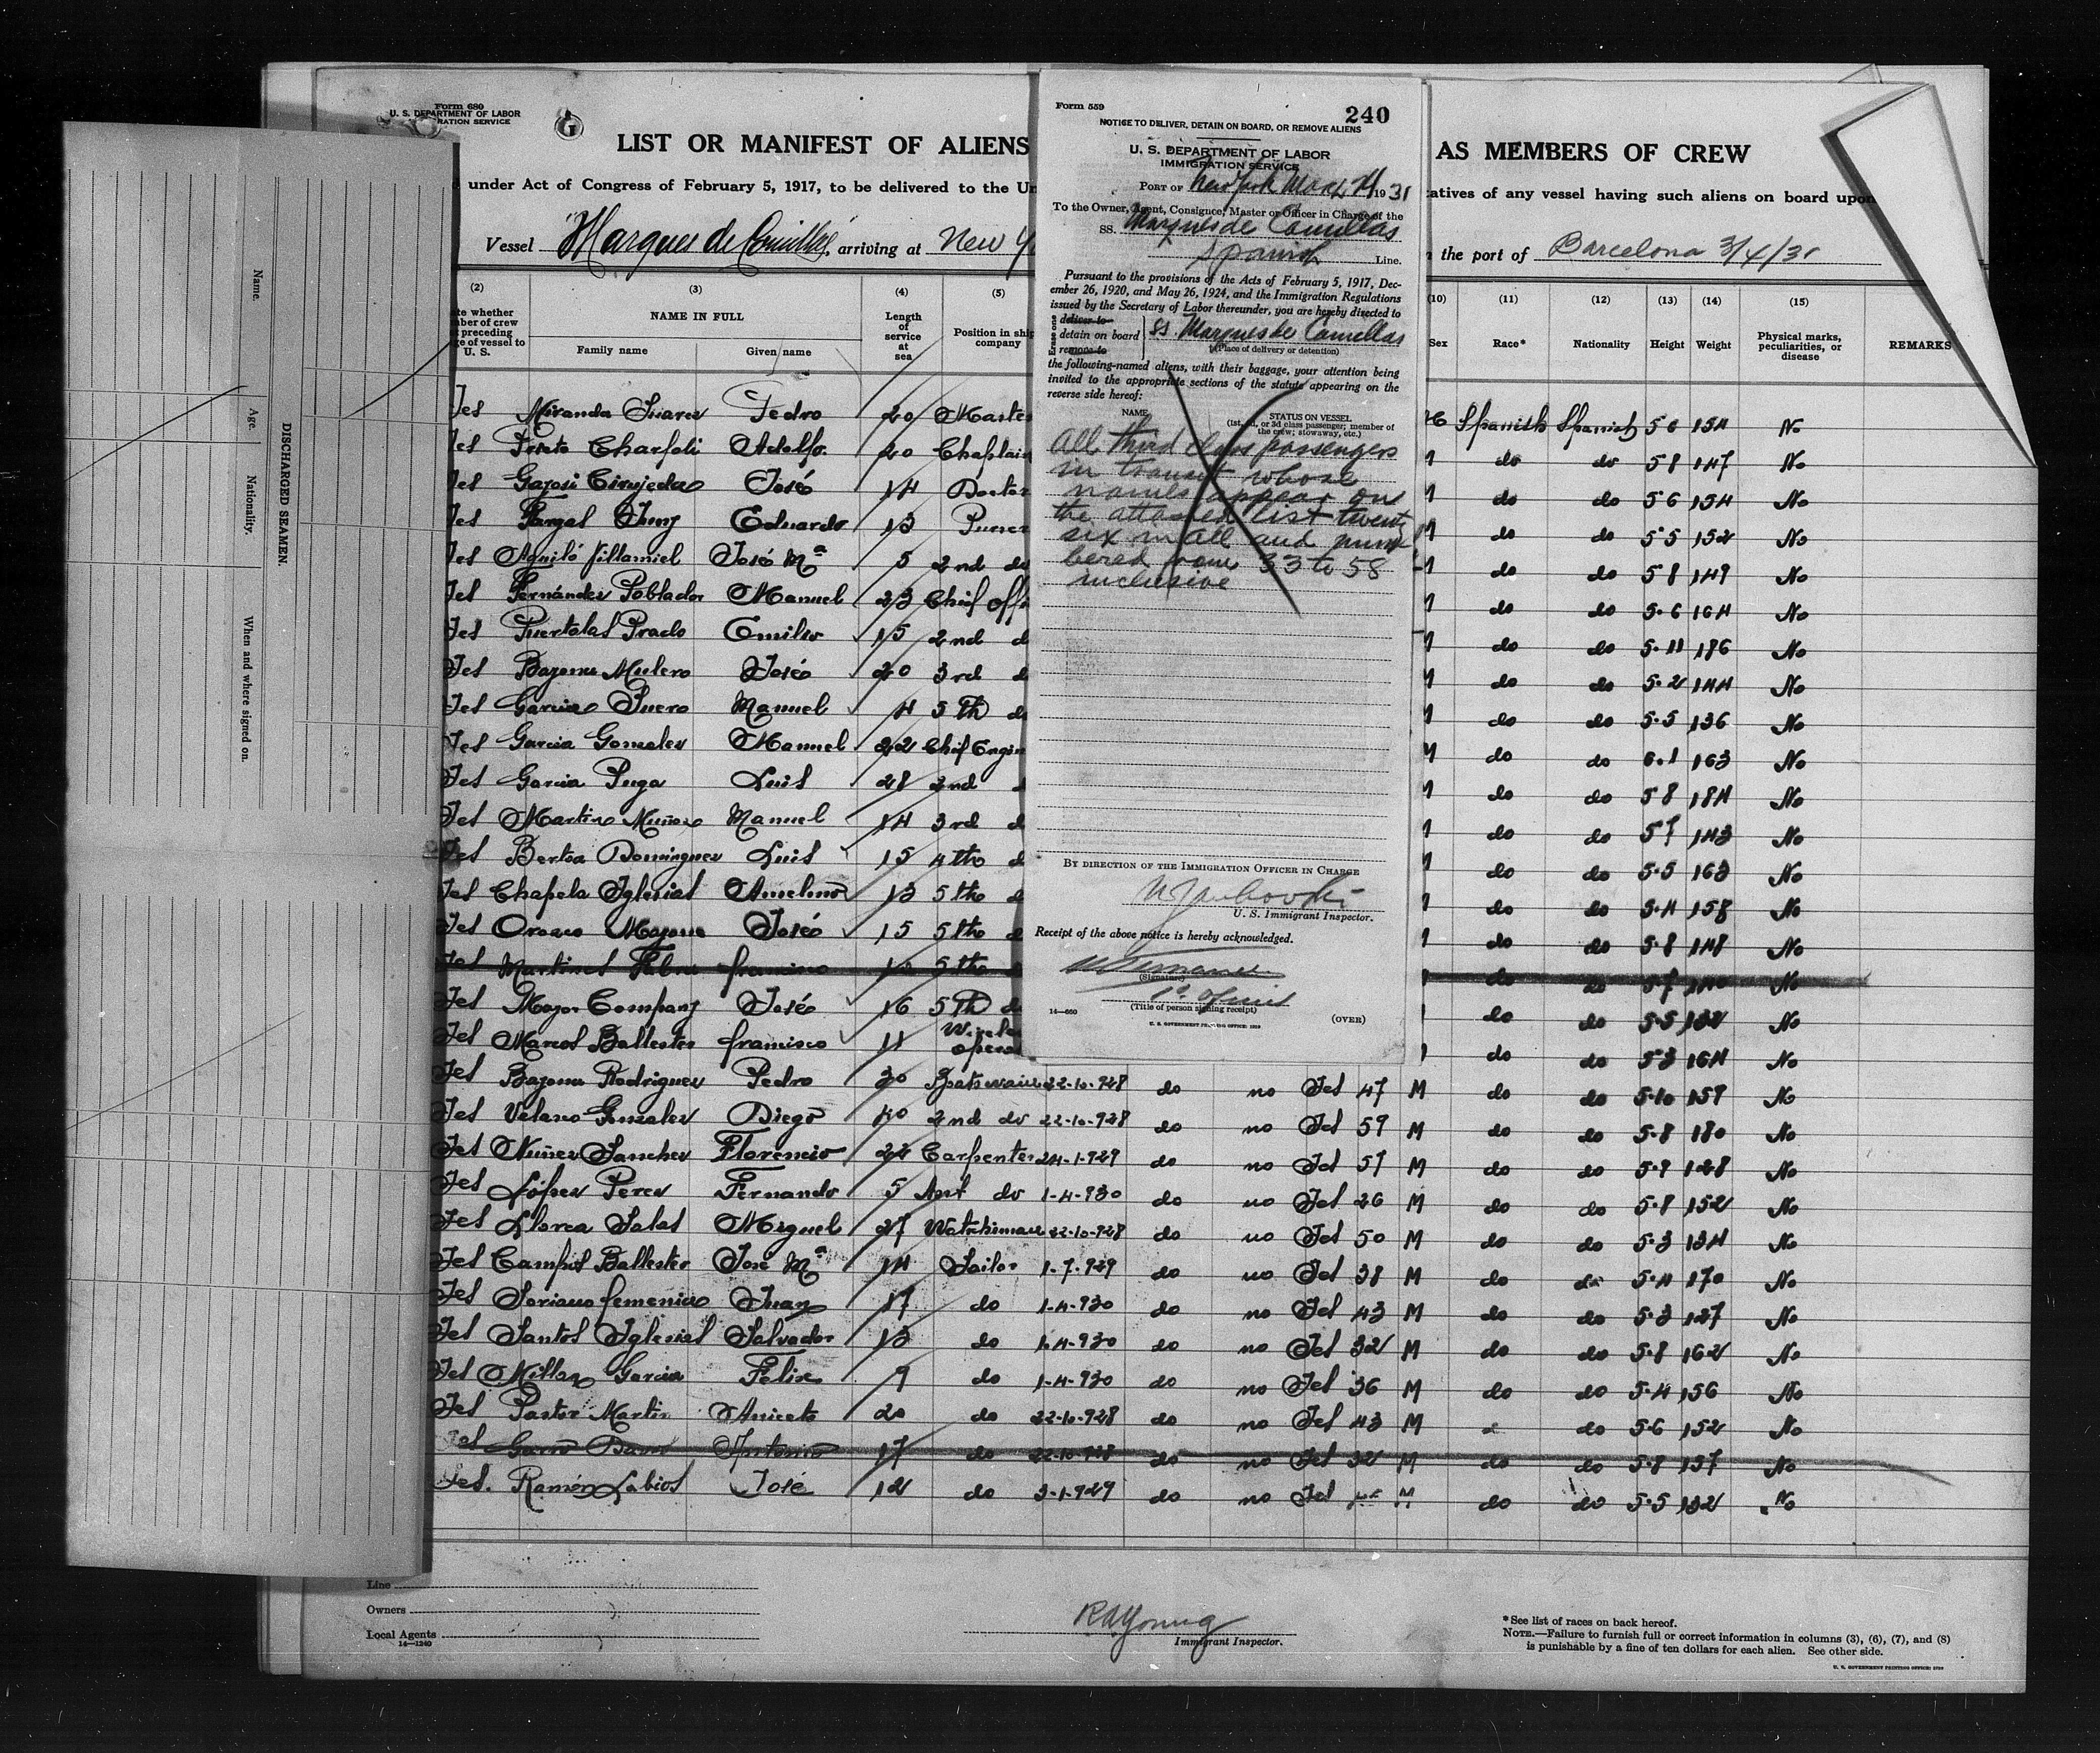 Form 680
U. S. DEPARTMENT OF LABOR
RATION SERVICE
G
LIST OR MANIFEST OF ALIENS
AS MEMBERS OF CREW
under Act of Congress of February 5, 1917, to be delivered to the Un
tatives of any vessel having such aliens on board upon
Vessel "Marques de Comillas", arriving at New Y
the port of Barcelona 3/4/31
(2) (3) (4) (5)
te whether
ber of crew
preceding
ge of vessel to
U. S.
NAME IN FULL
Family name Given name
Length
of
service
at
sea
Position in ship
company
(10) (11) (12) (13) (14) (15)
Sex Race* Nationality Height Weight
Physical marks,
peculiarities, or
disease
REMARKS
Name.
Age.
Nationality.
When and where signed on.
DISCHARGED SEAMEN.
Form 559
240
NOTICE TO DELIVER, DETAIN ON BOARD, OR REMOVE ALIENS
U. S. DEPARTMENT OF LABOR
IMMIGRATION SERVICE
PORT OF New York 1931
To the Owner, Agent, Consignee, Master or Officer in Charge of the
SS. Marques de Comillas
Spanish Line.
Pursuant to the provisions of the Acts of February 5, 1917, Dec-
ember 26, 1920, and May 26, 1924, and the Immigration Regulations
issued by the Secretary of Labor thereunder, you are hereby directed to
Erase one
deliver to
detain on board
remove to
SS. Marques de Comillas
(Place of delivery or detention)
the following-named aliens, with their baggage, your attention being
invited to the appropriate sections of the statute appearing on the
reverse side hereof:
NAME
STATUS ON VESSEL
(1st, 2d, or 3d class passenger; member of
the crew; stowaway, etc.)
All third class passengers
in transit whose
names appear on
the attached list twenty
six in all and num
bered from 33 to 58
inclusive
BY DIRECTION OF THE IMMIGRATION OFFICER IN CHARGE
U. S. Immigrant Inspector.
Receipt of the above notice is hereby acknowledged.
(Signature)
(Title of person signing receipt)
14—660
U. S. GOVERNMENT PRINTING OFFICE: 1929
(OVER)
Yes Miranda Suarez Pedro 20 Maste Spanish Spanish 5 6 154 No
Yes Prieto Adolfo 20 Chaplain M do do 5 8 147 No
Yes José 14 Doctor M do do 5 6 154 No
Yes Eduardo 13 Purser M do do 5 5 152 No
Yes Aguiló Villamiel José Mª 5 2nd do M do do 5 8 149 No
Yes Fernández Poblador Manuel 23 Chief offi M do do 5.6 164 No
Yes Puertolas Prado Emilio 15 2nd d M do do 5.11 186 No
Yes Bazona Mulero José 20 3rd d M do do 5.2 144 No
Yes Garcia Suero Manuel 4 5th d M do do 5.5 136 No
Yes Garcia Gonzalez Manuel 22 Chief Engin M do do 6.1 163 No
Yes Garcia Puga Luis 28 2nd M do do 5 8 184 No
Yes Martin Muñoz Manuel 14 3rd d M do do 5 7 143 No
Yes Bertoa Dominguez Luis 15 4th d M do do 5.5 163 No
Yes Chapela Iglesias Anselmo 13 5th d M do do 5.4 158 No
Yes Orozco José 15 5th d M do do 5.8 148 No
Yes Martinez Francisco 10 5th do do 5.7 140 No
Yes Mayor Company José 16 5th d do do 5.5 132 No
Yes Marcos Ballester Francisco 11 Wirele opera do do 5 3 164 No
Yes Bazona Rodriguez Pedro 30 Boatswain 22-10-928 do no Yes 47 M do do 5.10 159 No
Yes Velasco Gonzalez Diego 40 2nd do 22-10-928 do no Yes 59 M do do 5.8 180 No
Yes Nuñez Sanchez Florencio 22 Carpenter 24-1-929 do no Yes 57 M do do 5.9 128 No
Yes López Perez Fernando 5 Asst do 1-4-930 do no Yes 26 M do do 5.8 152 No
Yes Llorca Salas Miguel 27 Watchman 22-10-928 do no Yes 50 M do do 5.3 134 No
Yes Campos Ballester José Mª 14 Sailor 1-7-929 do no Yes 38 M do do 5.4 170 No
Yes Soriano Femenia Juan 17 do 1-4-930 do no Yes 43 M do do 5.3 127 No
Yes Santos Iglesias Salvador 13 do 1-4-930 do no Yes 32 M do do 5.8 162 No
Yes Millan Garcia Felix 9 do 1-4-930 do no Yes 36 M do do 5.4 156 No
Yes Pastor Martin Aniceto 20 do 22-10-928 do no Yes 43 M do 5.6 152 No
Yes Antonio 17 do 22-10-928 do no Yes 32 M do do 5.8 157 No
Yes. Ramón Labios José 12 do 3-1-929 do no Yes M do do 5.5 132 No
Line
Owners
Local Agents
14—1240
RAYoung
Immigrant Inspector.
*See list of races on back hereof.
NOTE.—Failure to furnish full or correct information in columns (3), (6), (7), and (8)
is punishable by a fine of ten dollars for each alien. See other side.
U. S. GOVERNMENT PRINTING OFFICE: 1929